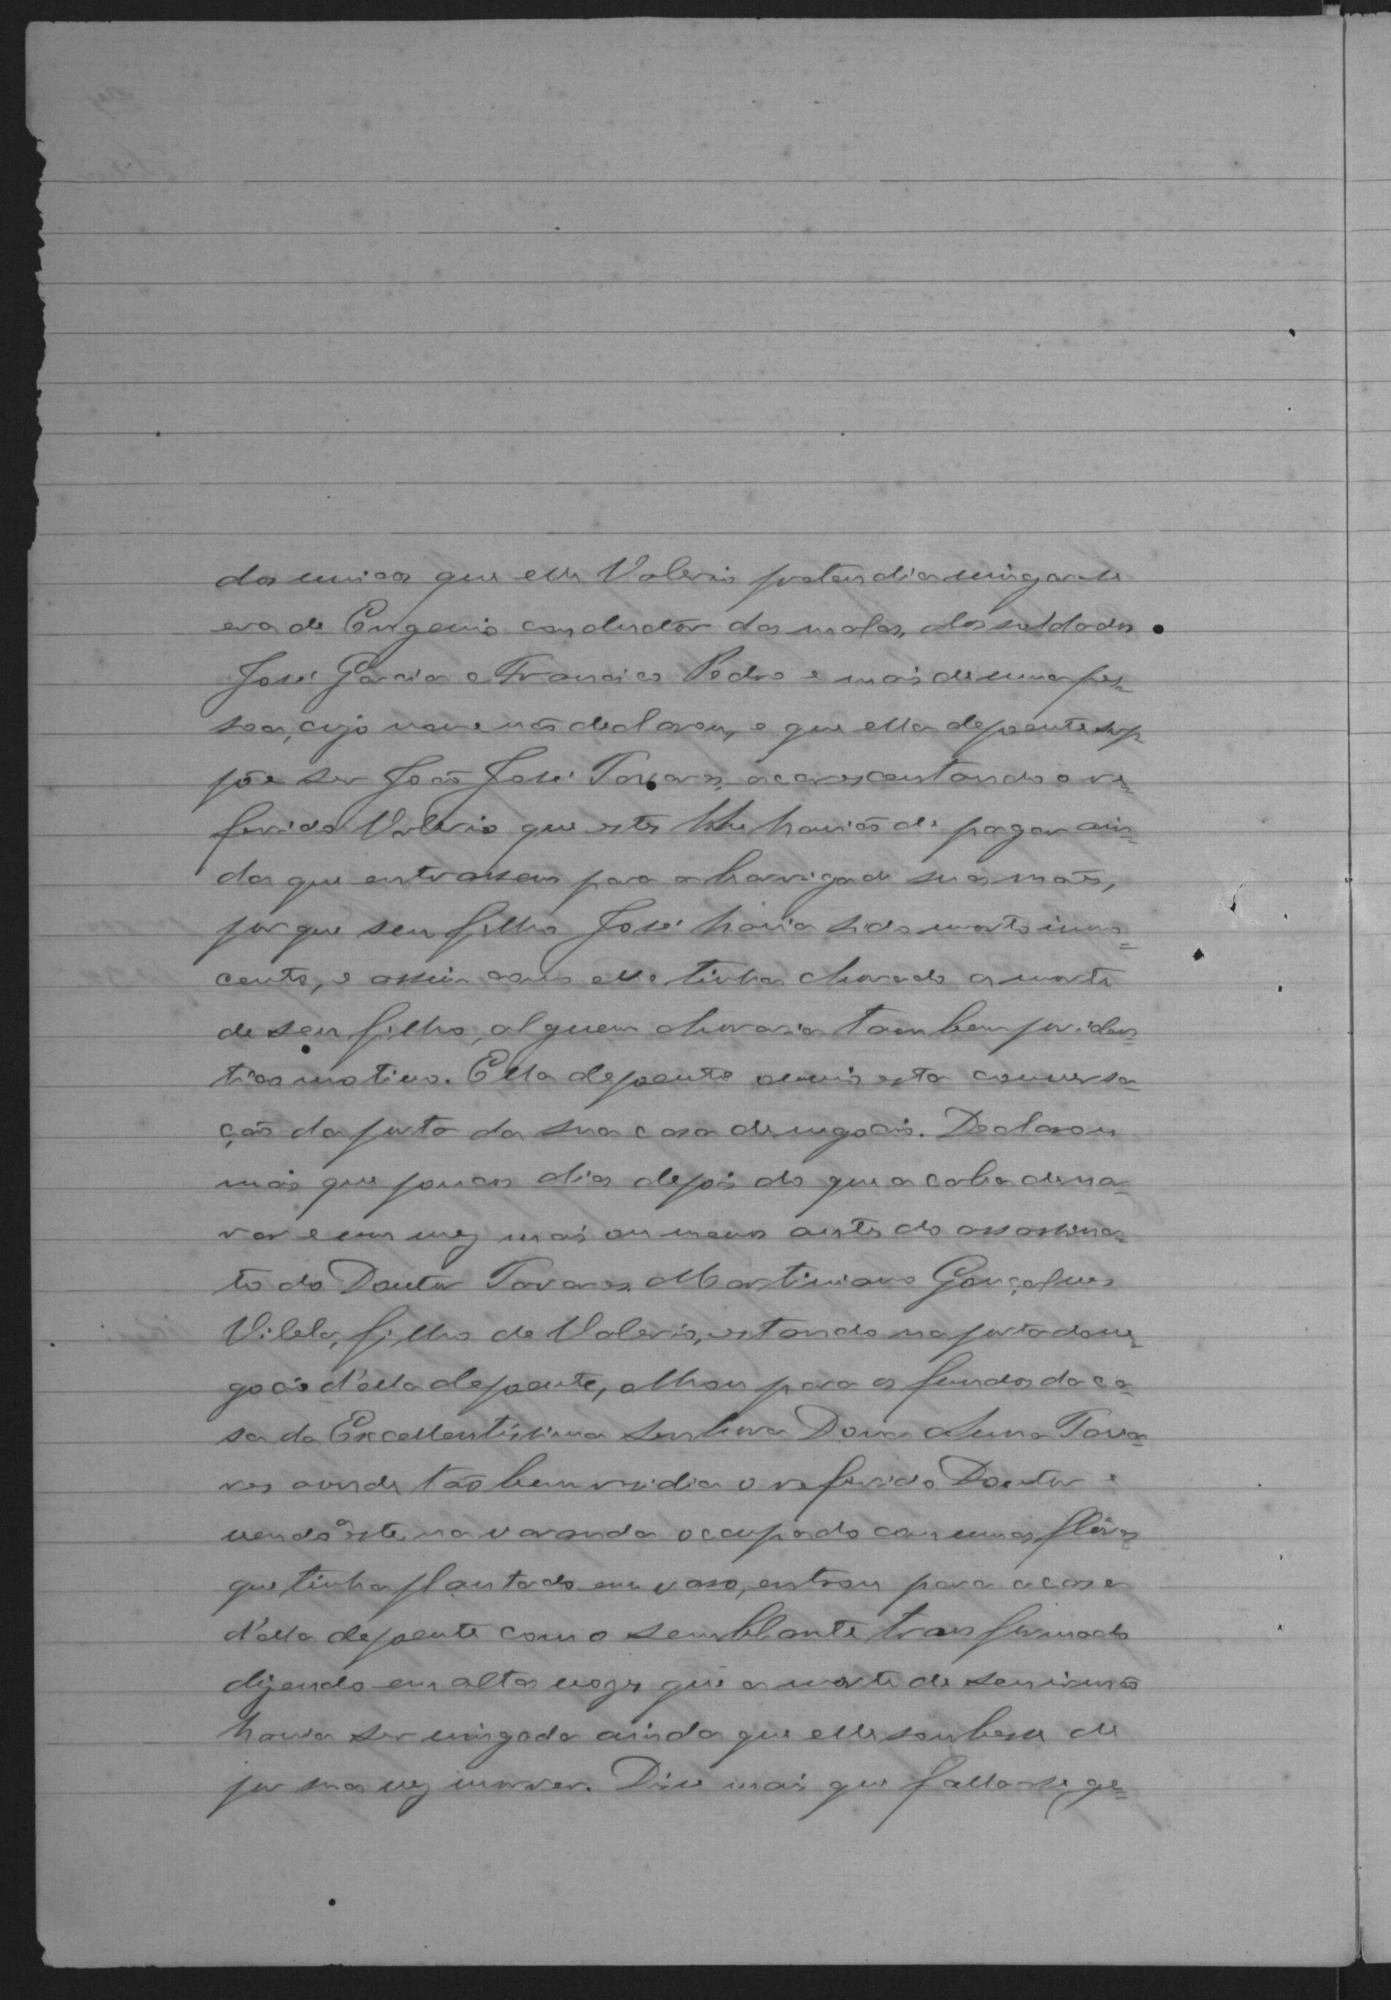 dos unicos que elle Valerio pretendia vingar-se
era de Eugenio conductôr das malas, dos soldados
José Garcia e Francisco Pedro e mais de uma pes=
soa, cujo nome não declarou, e que ella depoente sup=
põe ser João José Tavares, accrescentando o re=
ferido Valerio que estes lhe havião de pagar ain=
da que entrassem para a barriga de suas mães,
porque seu filho José havia sido morto inno=
cente, e assim como elle tinha chorado a morte
de seu filho, alguem choraria tambem por iden=
tico motivo. Ella depoente ouvio esta conversa=
ção da porta da sua casa de negocio. Declarou
mais que poucos dias depois do que acaba de nar=
rar e um mez mais ou menos antes do assassina=
to do Doutor Tavares, Martiniano Gonçalves
Vilela, filho de Valerio, estando na porta do ne=
gocio d'ella depoente, olhou para os fundos da ca=
sa da Excellentissima Senhora Dona Anna Tava=
res aonde tão bem residia o referido Doutor e
vendo a este na varanda occupado com umas flôres
que tinha plantado em vaso, entrou para a casa
d'ella depoente com o semblante transformado
dizendo em altas vozes que a morte de seu irmão
havia ser vingada ainda que elle soubesse de
por sua vez morrer. Disse mais que falla-se, ge=